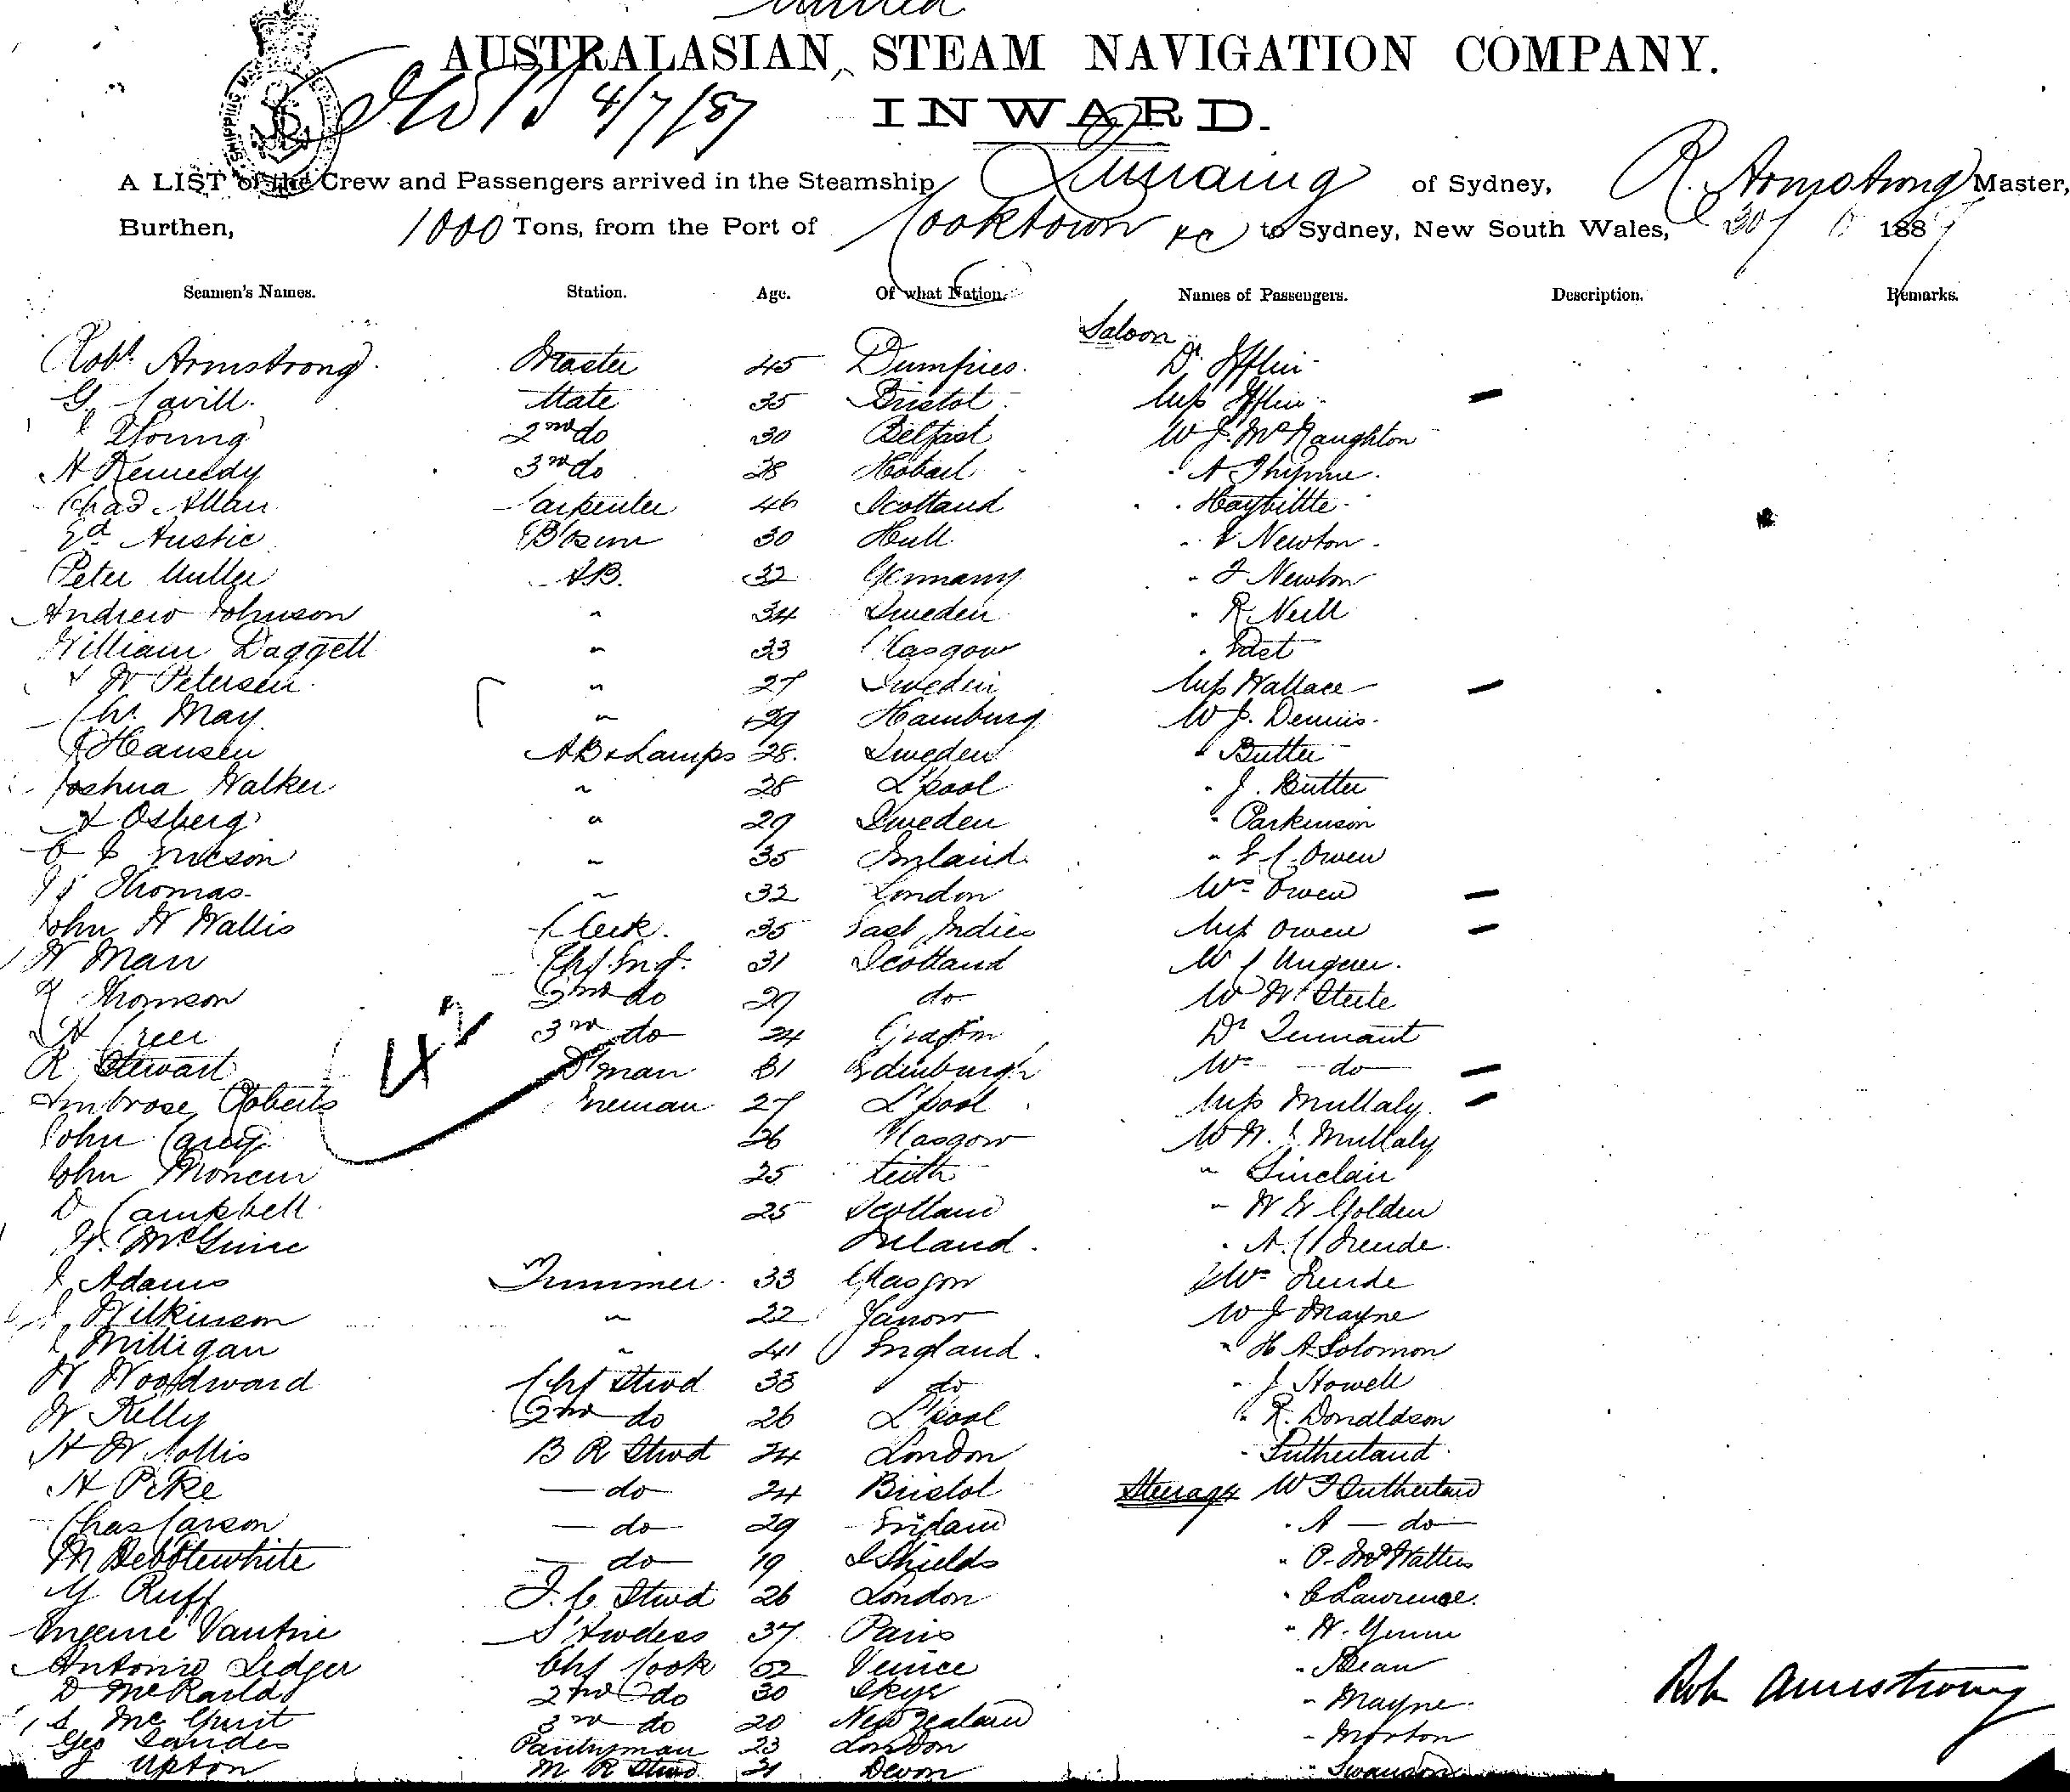 Limited
AUSTRALASIAN STEAM NAVIGATION COMPANY.
4/7/87 INWARD.
A LIST of the Crew and Passengers arrived in the Steamship of Sydney, R. Armstrong Master,
Burthen, 1000 Tons, from the Port of Cooktown &c to Sydney, New South Wales, 30/ 1887
Seamen's Names. Station. Age. Of what Nation. Names of Passengers. Description. Remarks.
Saloon
Robt Armstrong Master 45 Dumfries Dr Ifflin
G. Cavill Mate 35 Bristol Miss Ifflin
Young 2nd do 30 Belfast W J. McNaughton
A Kennedy 3rd do 28 Hobart " A Thynne
Chas Allan Carpenter 46 Scotland " Haybittle
Ed Austic Bosun 30 Hull " Newton
Peter Muller A.B. 32 Germany " J Newton
Andrew Johnson " 34 Sweden " R Neill
William Daggett " 33 Glasgow "
W Petersen " 27 Sweden Miss Wallace
Ch. May " 29 Hamburg W J. Dennis
J Hansen AB & Lamps 28 Sweden " Butter
Joshua Walker " 28 L'pool " J. Butter
Osberg " 29 Sweden " Parkinson
" 35 " Owen
Thomas " 32 London Mrs Owen
John W Wallis Clerk 35 East Indies Miss Owen
W Marr Chf. Eng. 31 Scotland
Thomson 2nd do 29 do W W Steele
A Creer 3rd do 24 Grafton Dr Tennant
R Stewart D'man 31 Edinburgh Mrs do
Ambrose Roberts Fireman 27 L'pool Miss Mullaly
John Carey 26 Glasgow Mullaly
John Moncur 25 Leith " Sinclair
D Campbell 25 Scotland " Golden
McGuire Ireland
J Adams Trimmer 33 Glasgow Mrs
Wilkinson " 22 Jarrow W J Mayne
Milligan " 41 England " H A Solomon
W Woodward Chf Stwd 33 do " J Howell
W Kelly 2nd do 26 L'pool " R. Donaldson
A W Collis B R Stwd 24 London " Sutherland
A Pike do 24 Bristol Steerage W J Sutherland
Chas Carson do 29 " A do
M Bebblewhite do 19 S Shields " P. McWatters
G Ruff F. C. Stwd 26 London " C Lawrence
Eugenie Vautrie S'twdess 37 Paris "
Antonio Ledger Chf Cook 52 Venice " Bean
D McKaild 2nd do 30 Skye " Mayne
3rd do 20 New Zealand " Morton
Geo Sandes Pantryman 23 London " Swanson
J Upton M R Stwd 21 Devon
Robt Armstrong